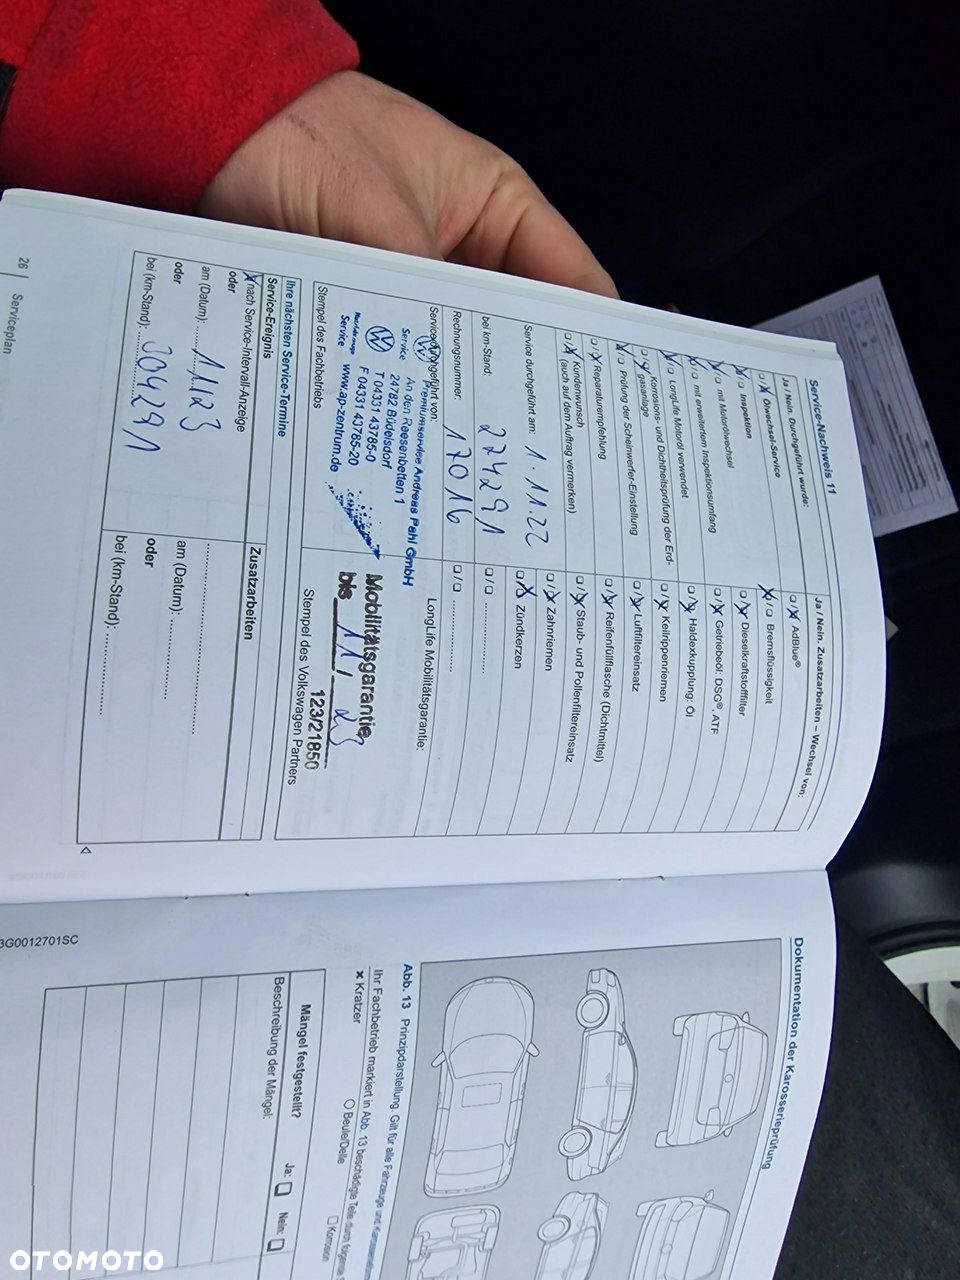 Service-Nachweis 11
Ja / Nein. Durchgeführt wurde:
Ölwechsel-Service
Inspektion
mit Motorölwechsel
mit erweitertem Inspektionsumfang
LongLife Motoröl verwendet
Korrosions- und Dichtheitsprüfung der Erd-
gasanlage
Prüfung der Scheinwerfer-Einstellung
Reparaturempfehlung
Kundenwunsch
(auch auf dem Auftrag vermerken)
Service durchgeführt am: 1.11.22
bei km-Stand: 274291
Rechnungsnummer: 17016
Service durchgeführt von:
Premiumservice Andreas Pahl GmbH
Service An den Reesenbetten 1
24782 Büdelsdorf
T 04331 43785-0
F 04331 43785-20
Service www.ap-zentrum.de
Stempel des Fachbetriebs
Ja / Nein. Zusatzarbeiten – Wechsel von:
AdBlue®
Bremsflüssigkeit
Dieselkraftstofffilter
Getriebeöl: DSG®, ATF
Haldexkupplung: Öl
Keilrippenriemen
Luftfiltereinsatz
Reifenfüllflasche (Dichtmittel)
Staub- und Pollenfiltereinsatz
Zahnriemen
Zündkerzen
LongLife Mobilitätsgarantie:
Mobilitätsgarantie
bis 11/23
123/21850
Stempel des Volkswagen Partners
Ihre nächsten Service-Termine
Service-Ereignis
nach Service-Intervall-Anzeige
oder
am (Datum): 1123
oder
bei (km-Stand): 304291
Zusatzarbeiten
am (Datum):
oder
bei (km-Stand):
26 | Serviceplan
Dokumentation der Karosserieprüfung
Abb. 13 Prinzipdarstellung. Gilt für alle Fahrzeuge und
Ihr Fachbetrieb markiert in Abb. 13 beschädigte Teile durch
Kratzer
Beule/Delle
Korrosion
Mängel festgestellt?
Ja:
Nein:
Beschreibung der Mängel:
3G0012701SC
OTOMOTO